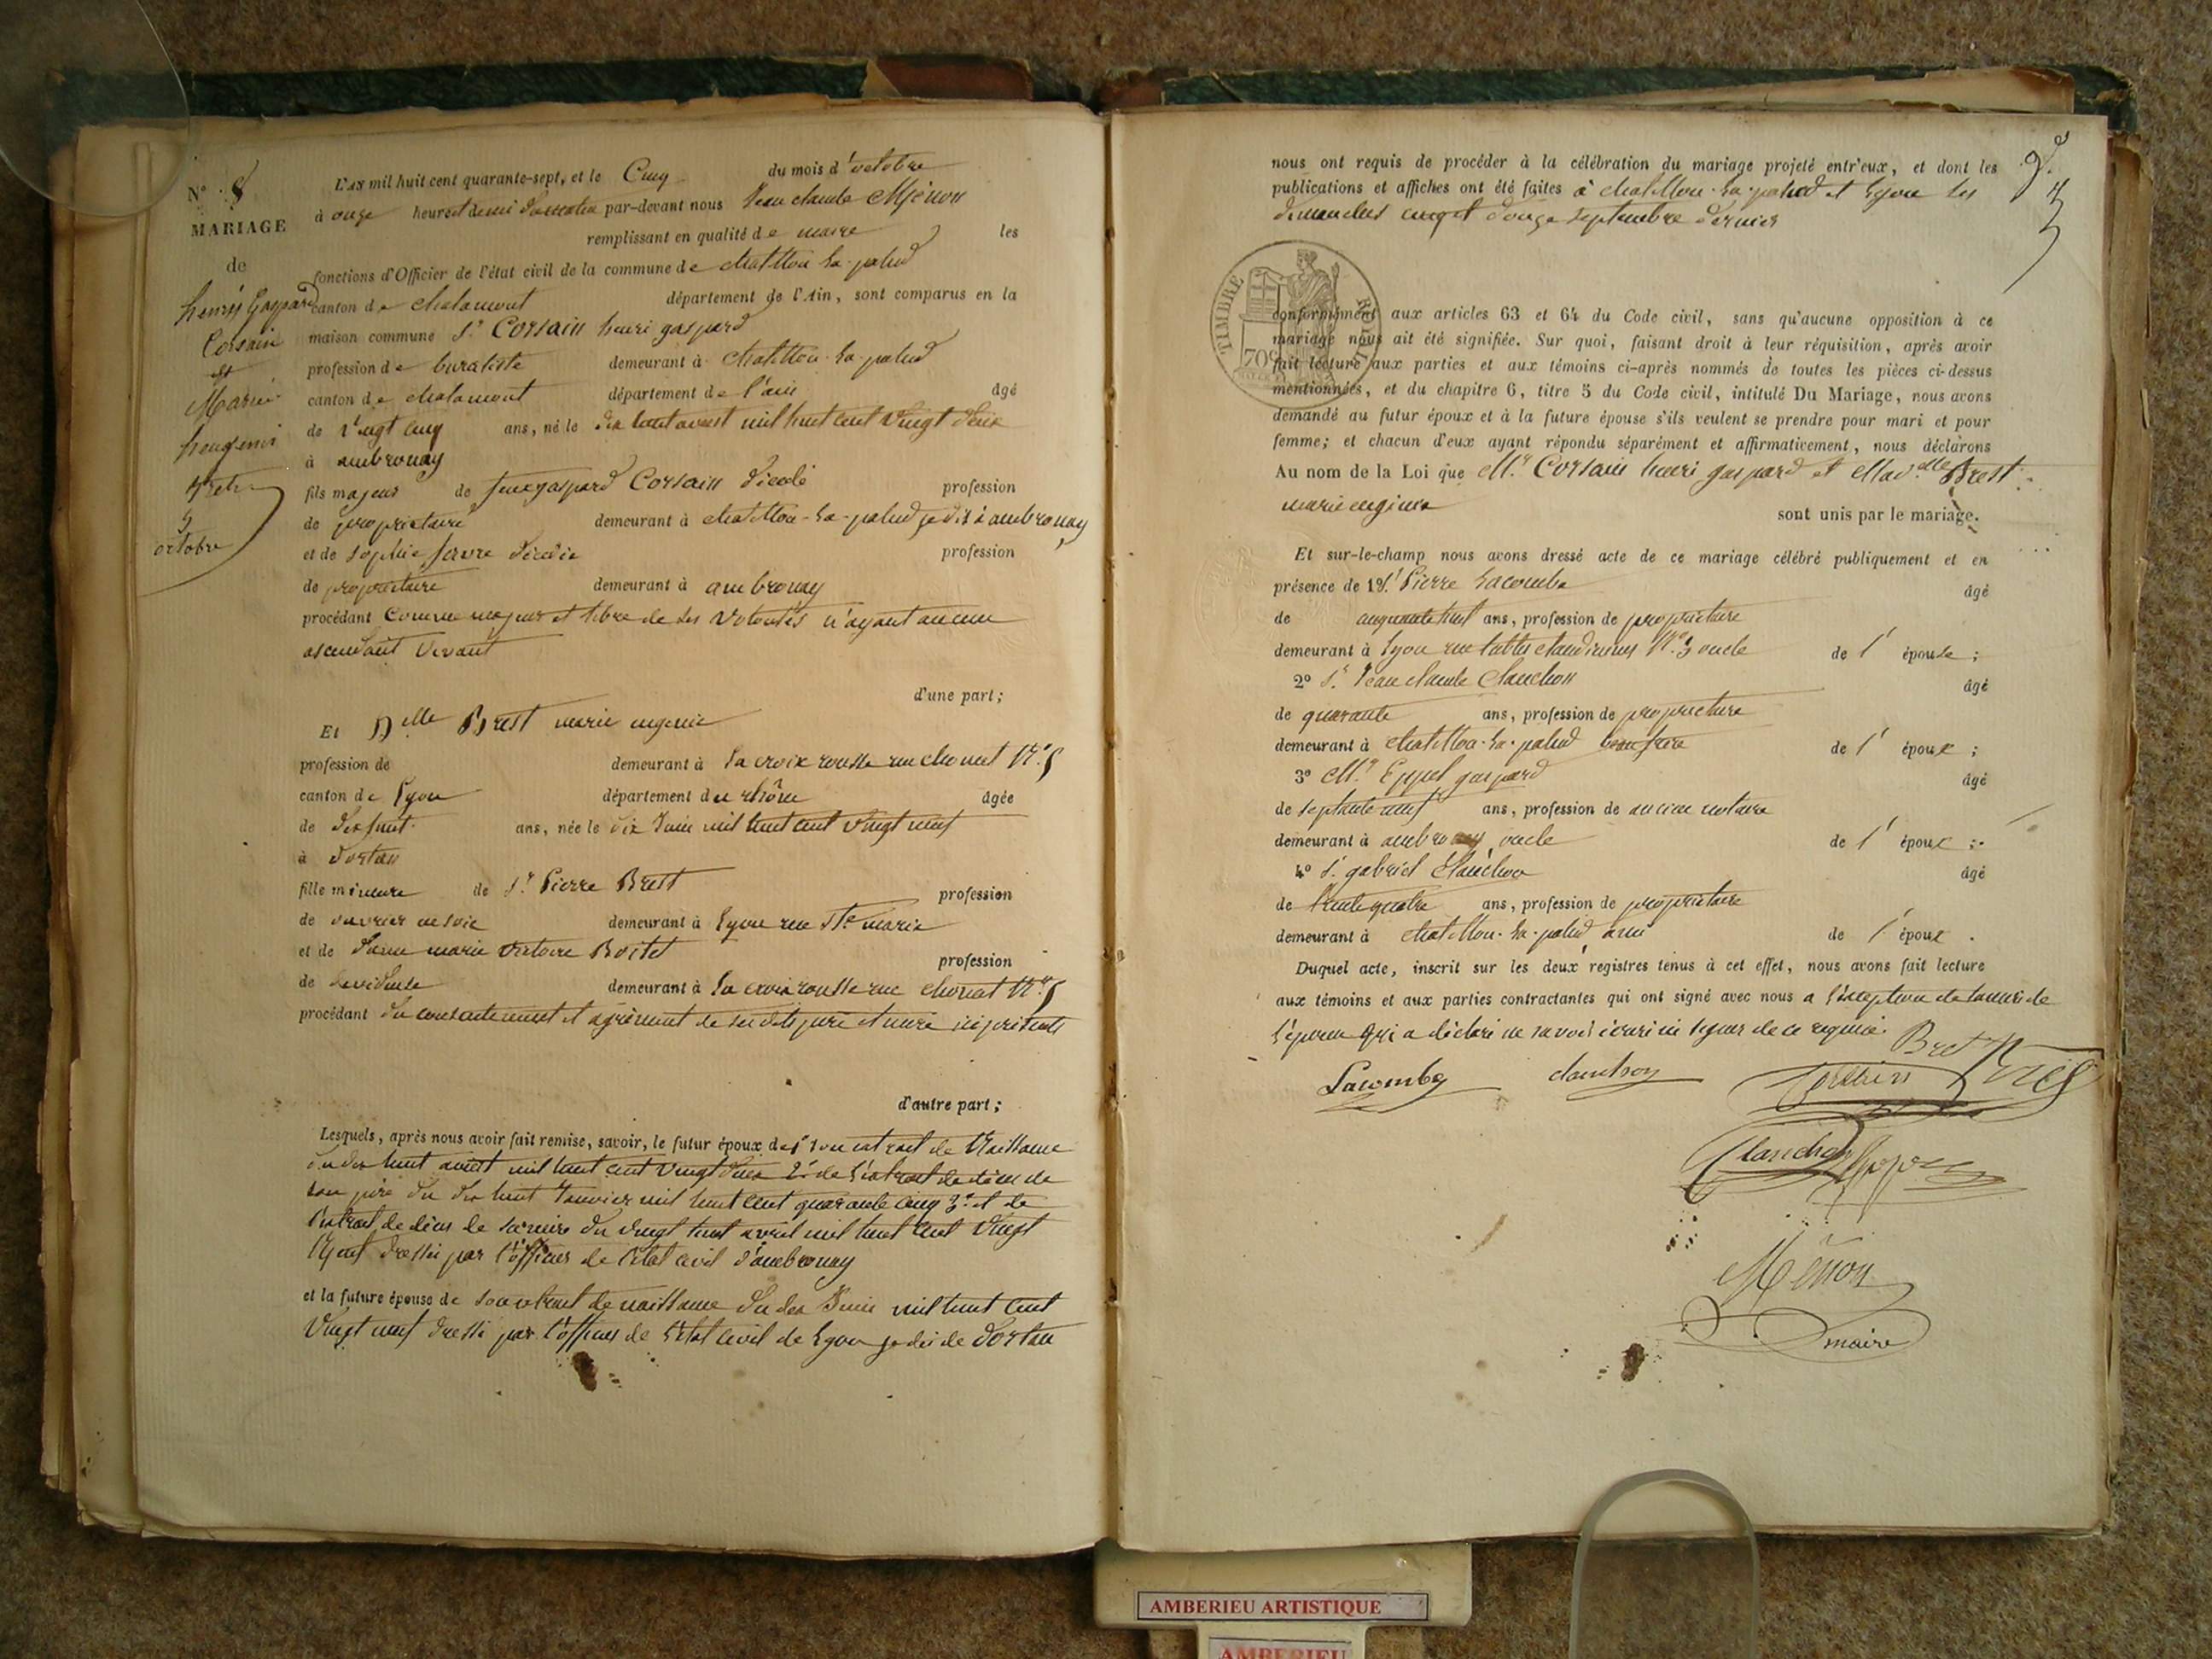 N° 8
MARIAGE
de
henry Gaspard
Corsain
et
Marie
heugenie
Bret
5
octobre
L'AN mil huit cent quarante-sept, et le Cinq du mois d'octobre
à onze heures et demi du matin par-devant nous Jean claude Ménon
remplissant en qualité de maire les
fonctions d'Officier de l'état civil de la commune de chatillon la palud
canton de chalamont département de l'Ain, sont comparus en la
maison commune Sr Corsain henri gaspard
profession de buraliste demeurant à chatillon la palud
canton de chalamont département de l'ain âgé
de vingt cinq ans, né le dix huit aoust mil huit cent vingt deux
à ambronay
fils majeur de feu gaspard Corsain décédé profession
de propriétaire demeurant à chatillon-la-palud je dis à ambronay
et de sophie favre décédée profession
de propriétaire demeurant à ambronay
procédant comme majeur et libre de ses volontés n'ayant aucun
ascendant vivant
d'une part;
Et Delle Brest marie eugenie
profession de demeurant à la croix rousse rue N° 5
canton de Lyon département du rhône âgée
de dix huit ans, née le dix Juin mil huit cent vingt neuf
à dortan
fille mineure de Sr Pierre Brest profession
de ouvrier en soie demeurant à Lyon rue Ste marie
et de dame marie victoire Boitet profession
de devideuse demeurant à la croix rousse rue N° 5
procédant du consentement et agrément de ses dits père et mère ici présents
d'autre part;
Lesquels, après nous avoir fait remise, savoir, le futur époux de 1° son extrait de Naissance
du dix huit aoust mil huit cent vingt deux 2° de l'extrait de décès de
son père du dix huit Janvier mil huit cent quarante cinq 3° et de
l'extrait de décès de sa mère du vingt huit avril mil huit cent vingt
dressés par l'officier de l'état civil d'ambronay
et la future épouse de son extrait de naissance du dix Juin mil huit cent
vingt neuf dressé par l'officier de l'état civil de Lyon je dis de dortan
nous ont requis de procéder à la célébration du mariage projeté entr'eux, et dont les
publications et affiches ont été faites à chatillon-la-palud et Lyon les
dimanches cinq et douze septembre dernier
TIMBRE ROYAL
70c
conformément aux articles 63 et 64 du Code civil, sans qu'aucune opposition à ce
mariage nous ait été signifiée. Sur quoi, faisant droit à leur réquisition, après avoir
fait lecture aux parties et aux témoins ci-après nommés de toutes les pièces ci-dessus
mentionnées, et du chapitre 6, titre 5 du Code civil, intitulé Du Mariage, nous avons
demandé au futur époux et à la future épouse s'ils veulent se prendre pour mari et pour
femme; et chacun d'eux ayant répondu séparément et affirmativement, nous déclarons
Au nom de la Loi que Mr Corsain henri gaspard et Madelle Brest
marie eugenie sont unis par le mariage.
Et sur-le-champ nous avons dressé acte de ce mariage célébré publiquement et en
présence de 1° Sr Pierre Lacombe âgé
de cinquante huit ans, profession de propriétaire
demeurant à Lyon rue tables claudiennes N° 3 oncle de l'épouse;
2° Sr Jean claude Clanchon âgé
de quarante ans, profession de propriétaire
demeurant à chatillon-la-palud beau frère de l'époux;
3° Mr Eppel gaspard âgé
de septante neuf ans, profession de ancien notaire
demeurant à ambronay oncle de l'époux;
4° Sr gabriel Clanchon âgé
de trente quatre ans, profession de propriétaire
demeurant à chatillon-la-palud ami de l'époux.
Duquel acte, inscrit sur les deux registres tenus à cet effet, nous avons fait lecture
aux témoins et aux parties contractantes qui ont signé avec nous a l'exception de la mère de
l'épouse qui a déclaré ne savoir écrire ni signer de ce requise.
Lacombe clanchon Corsain Bret
Clanchon
Ménon
maire
AMBERIEU ARTISTIQUE
AMBERIEU